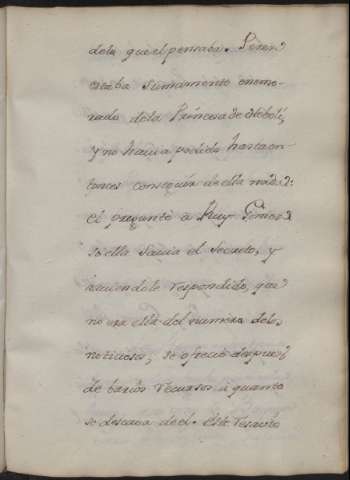 dela que el pensaba. Perez
estaba sumamente enamo-
rado dela Princesa de Eboli,
y no havia podido hasta en-
tonces conseguir de ella nada:
el preguntó a Ruy Gomez
si ella savia el secreto, y
haviendole respondido, que
no era ella del numero delos
noticiosos, se ofreció despues
de barios recursos à quanto
se deseava de el. Este